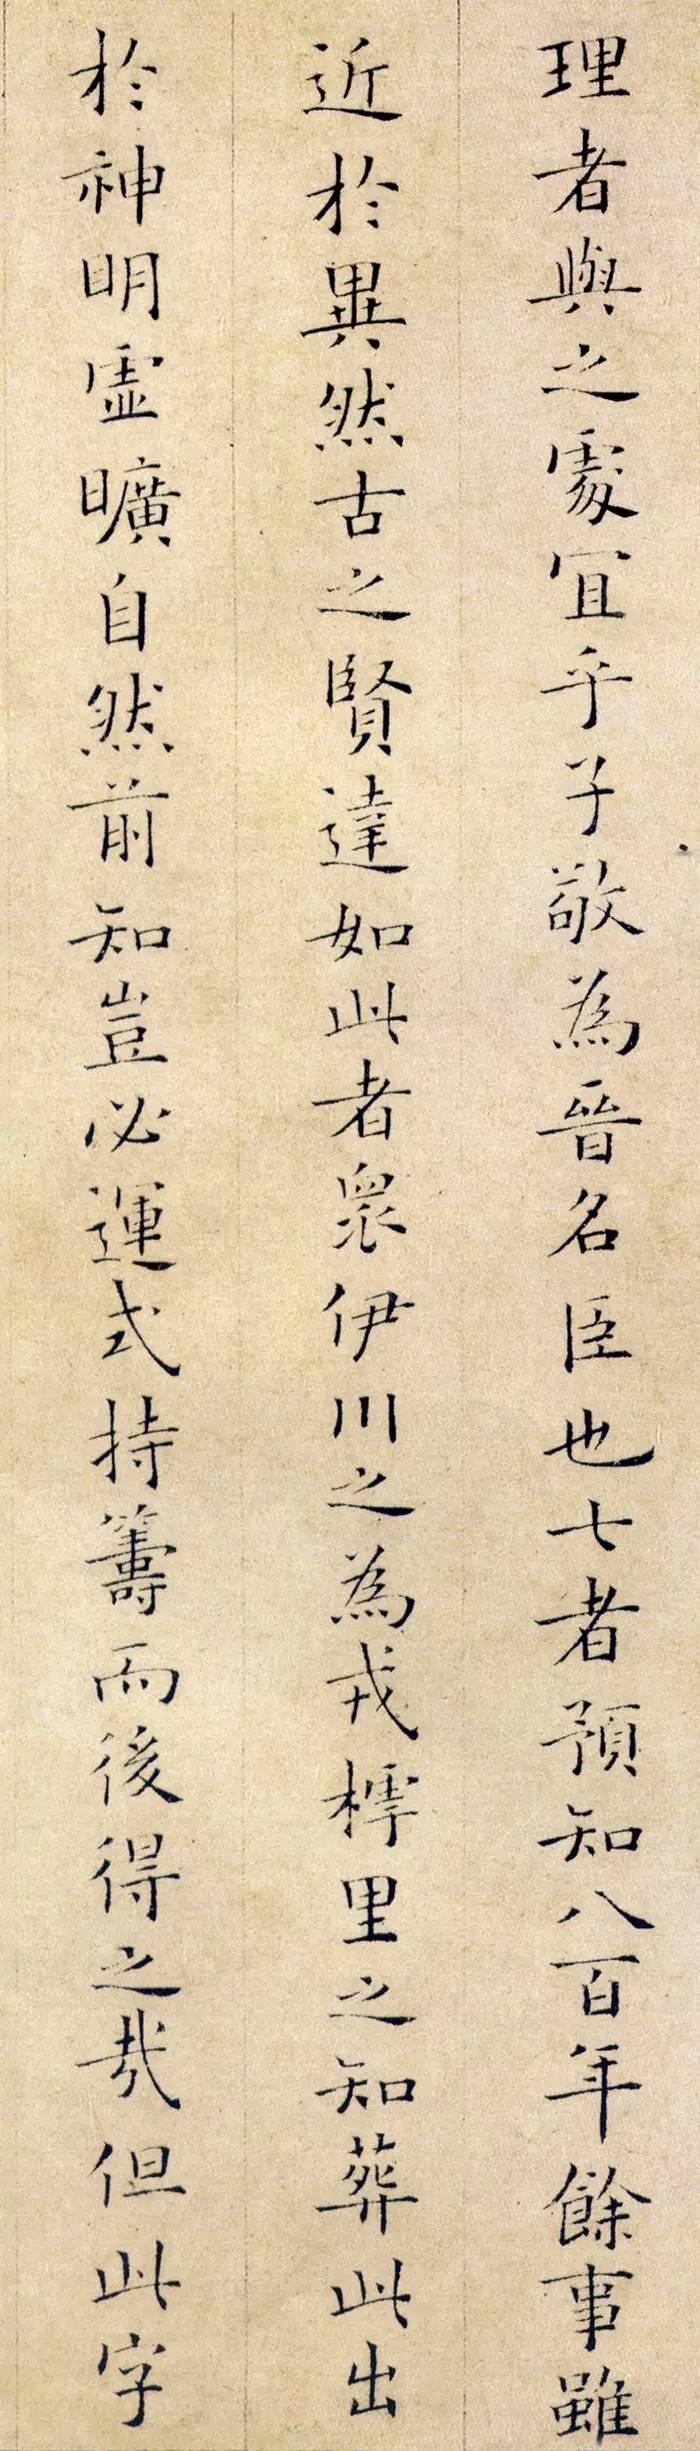 理者與之處宜乎子敬為晉名臣也七者預知八百年餘事雖
近於異然古之賢達如此者眾伊川之為戎樗里之知葬此出
於神明虛曠自然前知豈必運式持籌而後得之哉但此字